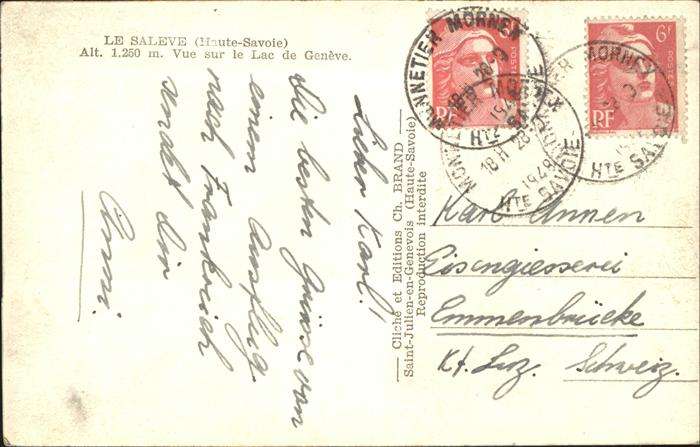 LE SALEVE (Haute-Savoie)
Alt. 1.250 m. Vue sur le Lac de Genève.
Lieber Karl!
Die besten Grüsse von
einem Ausflug
nach Frankreich
sendet dir
Anni.
Cliché et Editions Ch. BRAND
Saint-Julien-en-Genevois (Haute-Savoie)
Reproduction interdite
MONNETIER MORNEX
18 H 28-9
1948
HTE SAVOIE
POSTES
RF
6F
RF
Karl Annen
Eisengiesserei
Emmenbrücke
Kt. Luz. Schweiz.